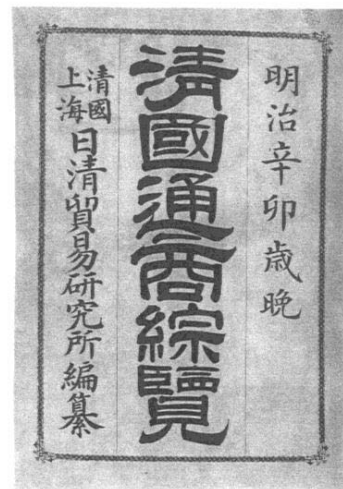 明治辛卯歳晩
清國通商綜覽
清國
上海
日清貿易研究所編纂